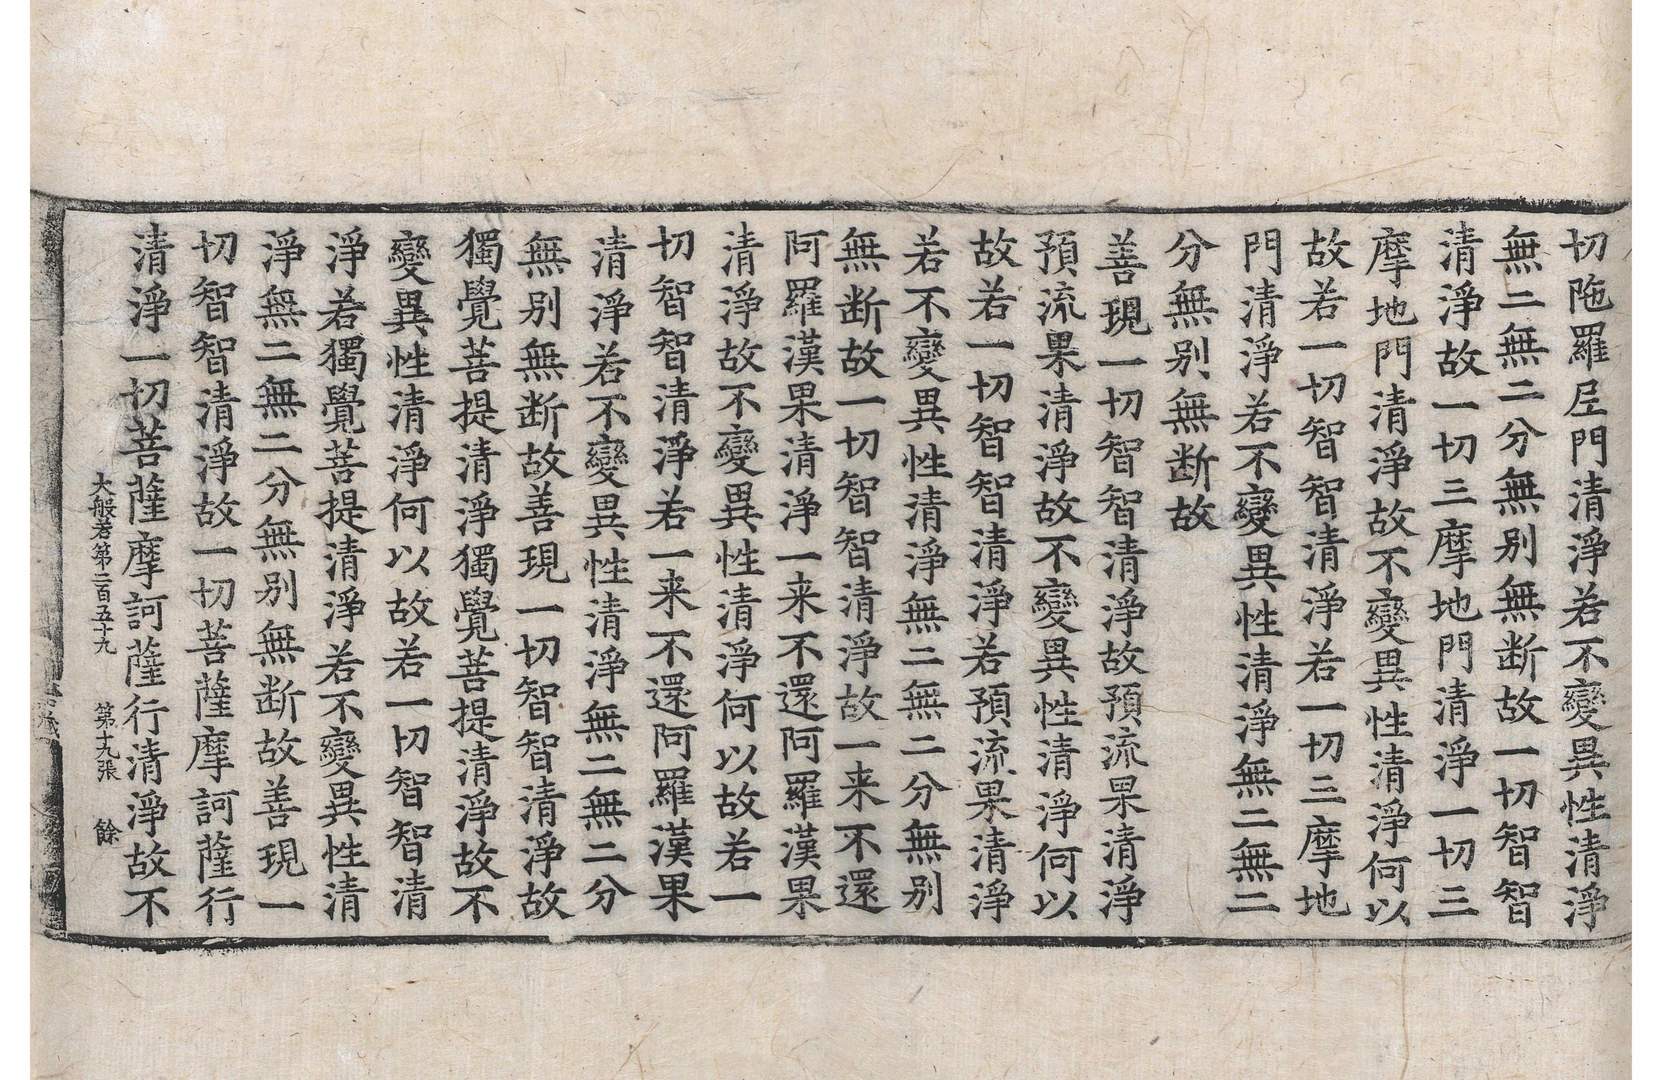 切陁羅尼門清淨若不變異性清淨
無二無二分無別無断故一切智智
清淨故一切三摩地門清淨一切三
摩地門清淨故不變異性清淨何以
故若一切智智清淨若一切三摩地
門清淨若不變異性清淨無二無二
分無別無断故
善現一切智智清淨故預流果清淨
預流果清淨故不變異性清淨何以
故若一切智智清淨若預流果清淨
若不變異性清淨無二無二分無別
無断故一切智智清淨故一来不還
阿羅漢果清淨一来不還阿羅漢果
清淨故不變異性清淨何以故若一
切智智清淨若一来不還阿羅漢果
清淨若不變異性清淨無二無二分
無別無断故善現一切智智清淨故
獨覺菩提清淨獨覺菩提清淨故不
變異性清淨何以故若一切智智清
淨若獨覺菩提清淨若不變異性清
淨無二無二分無別無断故善現一
切智智清淨故一切菩薩摩訶薩行
清淨一切菩薩摩訶薩行清淨故不
大般若第二百五十九 第十九張 餘